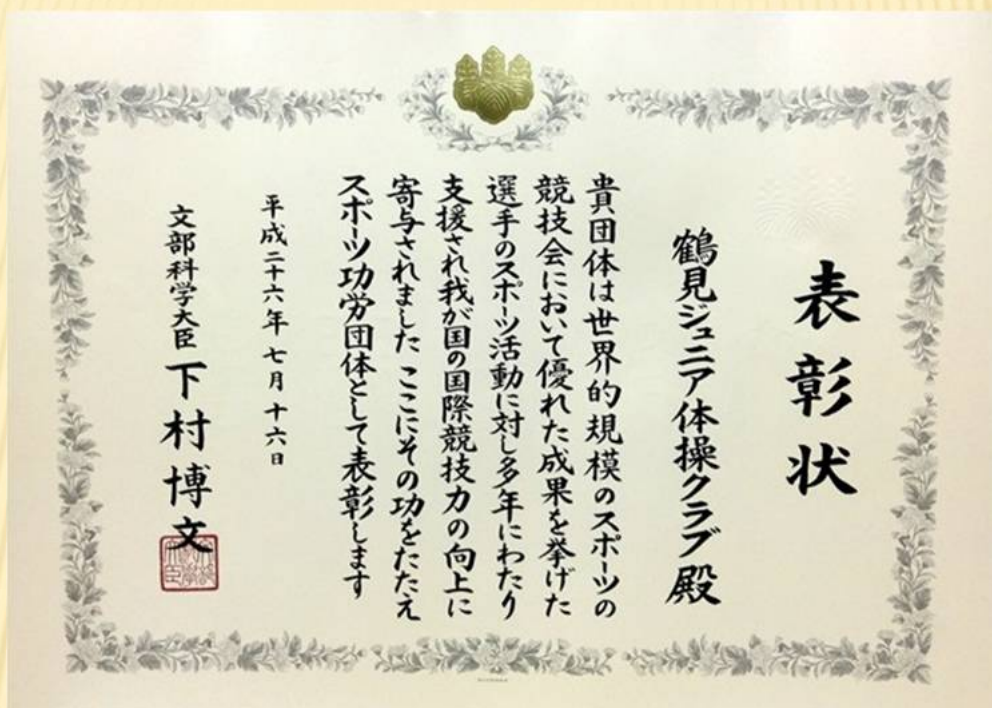 表彰状
鶴見ジュニア体操クラブ殿
貴団体は世界的規模のスポーツの
競技会において優れた成果を挙げた
選手のスポーツ活動に対し多年にわたり
支援され我が国の国際競技力の向上に
寄与されました ここにその功をたたえ
スポーツ功労団体として表彰します
平成二十六年七月十六日
文部科学大臣 下村博文